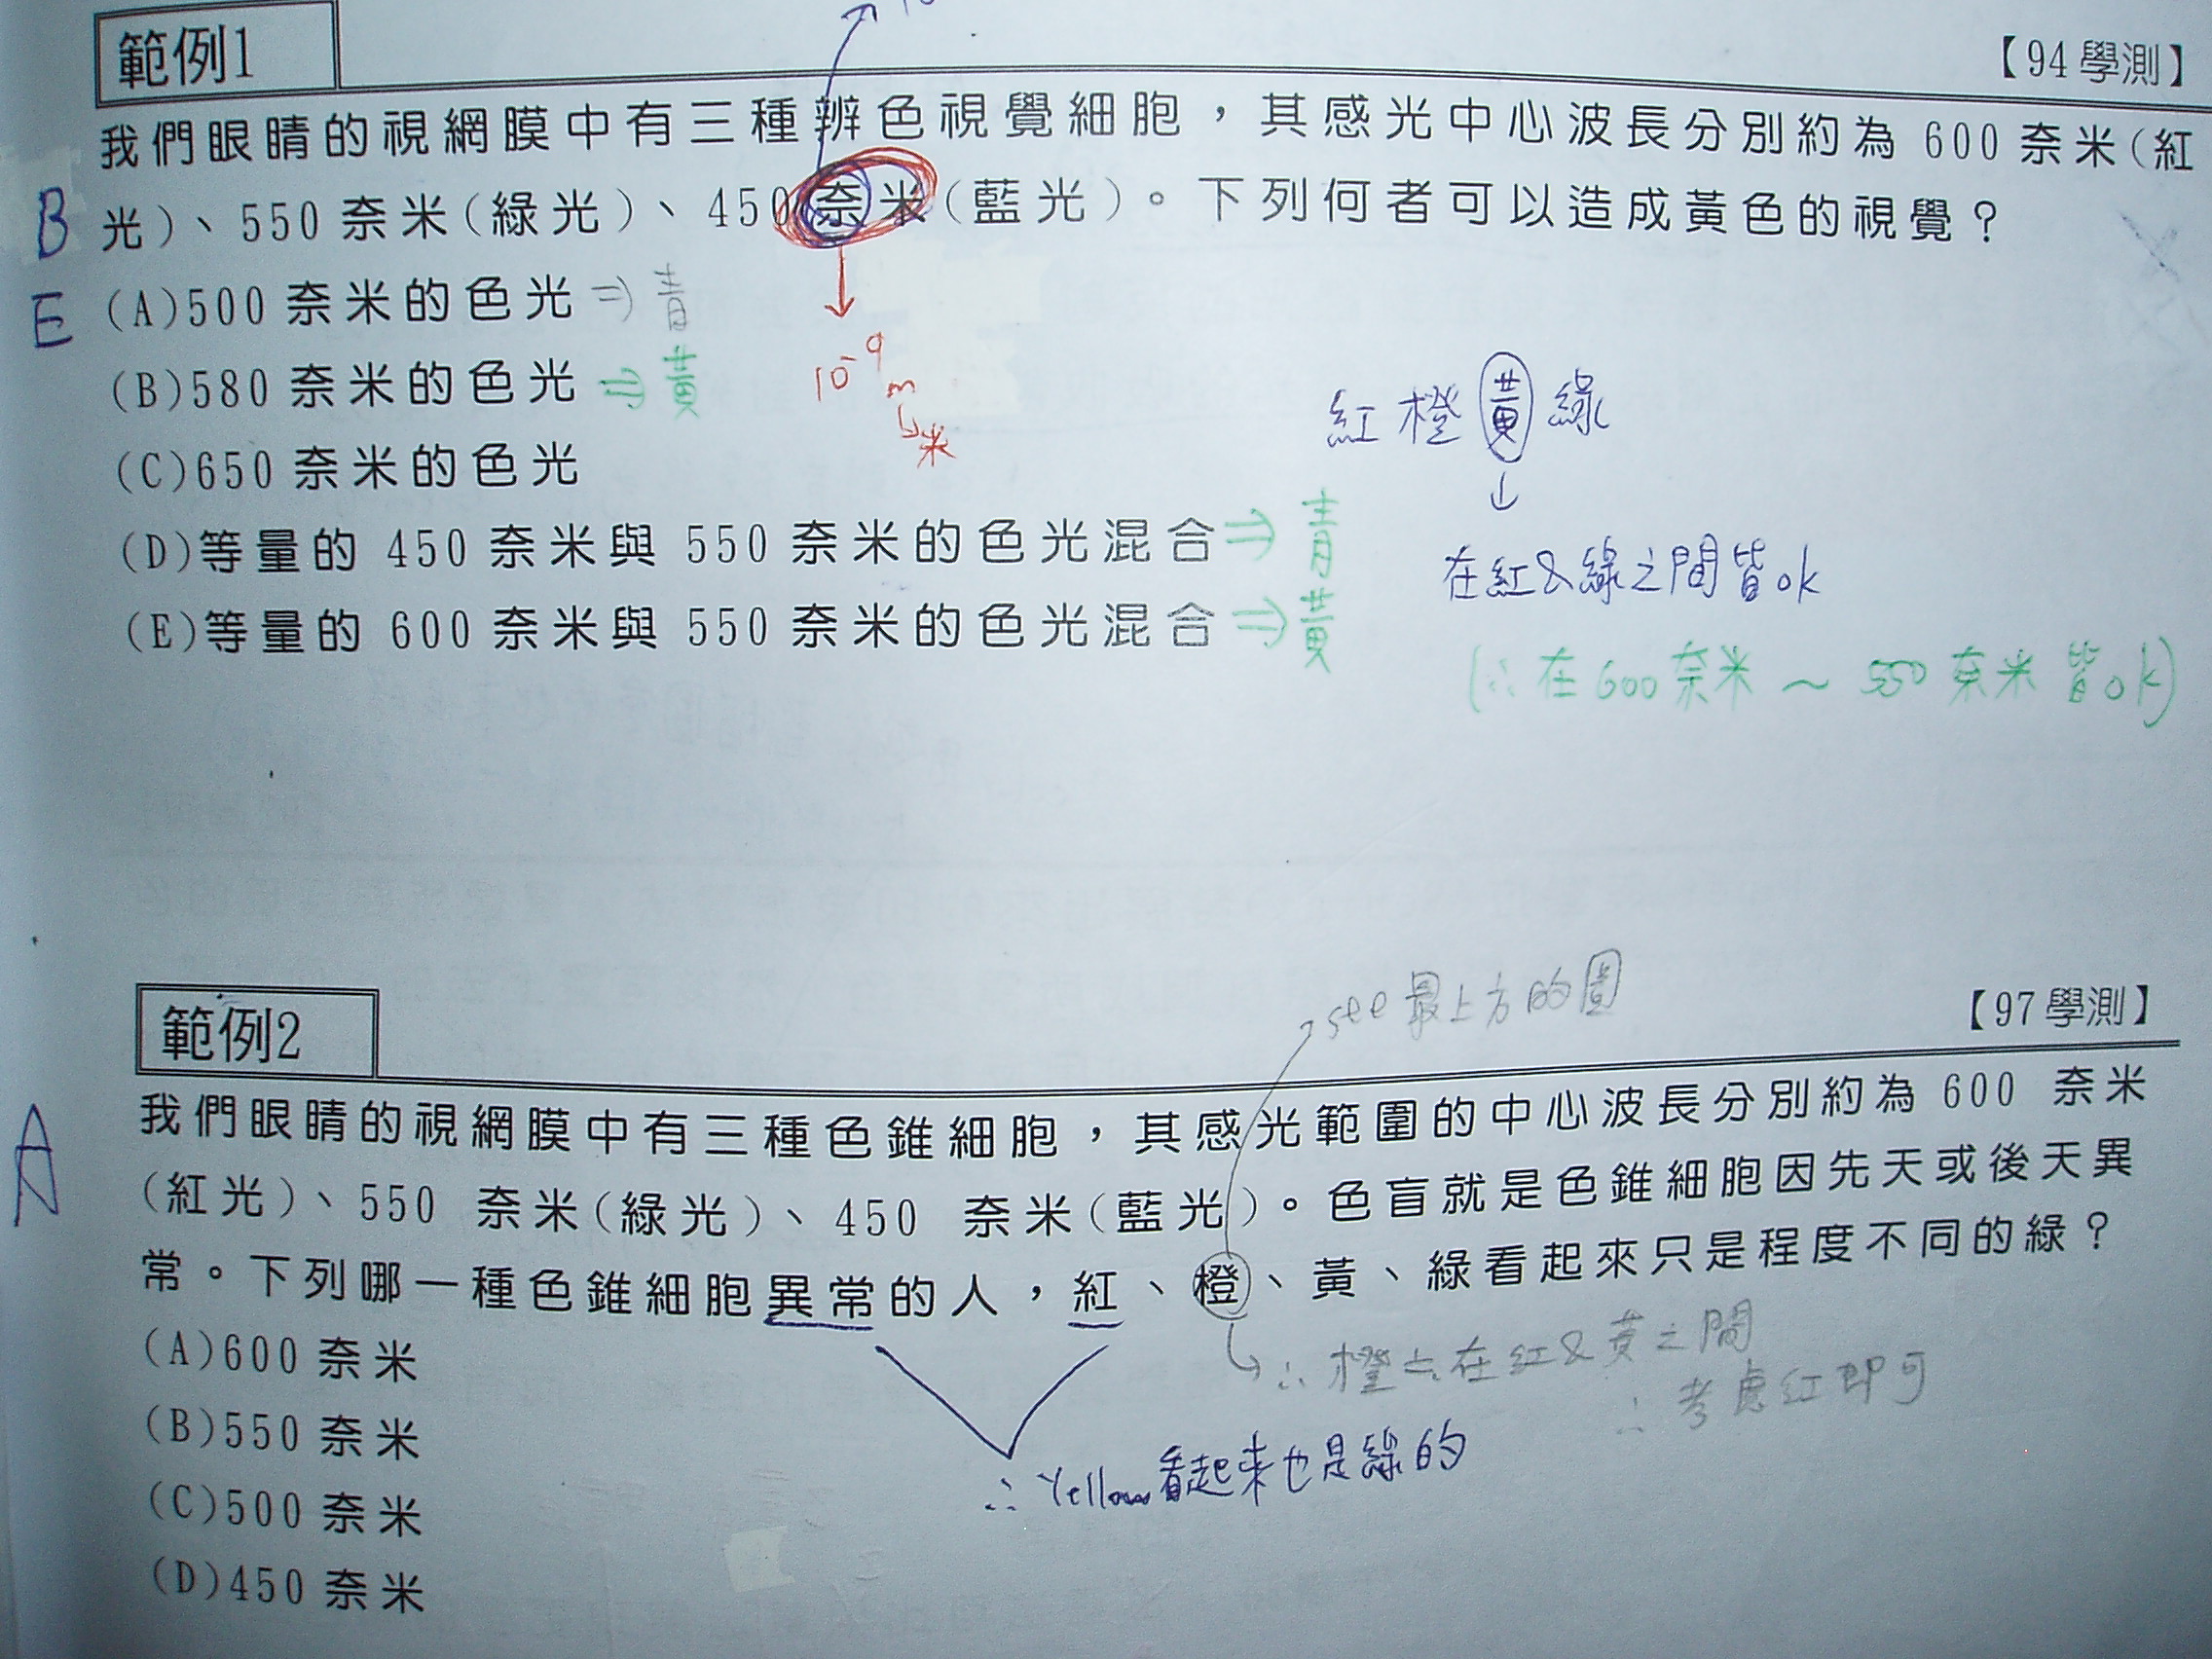 範例1
【94學測】
我們眼睛的視網膜中有三種辨色視覺細胞，其感光中心波長分別約為 600 奈米(紅
光)、550 奈米(綠光)、450 奈米(藍光)。下列何者可以造成黃色的視覺？
B
E
(A)500 奈米的色光 ⇒ 青
(B)580 奈米的色光 ⇒ 黃
(C)650 奈米的色光
(D)等量的 450 奈米與 550 奈米的色光混合 ⇒ 青
(E)等量的 600 奈米與 550 奈米的色光混合 ⇒ 黃
10⁻⁹
m
米
紅橙黃綠
在紅&綠之間皆ok
(∴在600奈米～550奈米皆ok)
範例2
see 最上方的圖
【97學測】
A
我們眼睛的視網膜中有三種色錐細胞，其感光範圍的中心波長分別約為 600 奈米
(紅光)、550 奈米(綠光)、450 奈米(藍光)。色盲就是色錐細胞因先天或後天異
常。下列哪一種色錐細胞異常的人，紅、橙、黃、綠看起來只是程度不同的綠？
(A)600 奈米
(B)550 奈米
(C)500 奈米
(D)450 奈米
∴橙 在紅&黃之間
∴考慮紅即可
∴Yellow看起來也是綠的